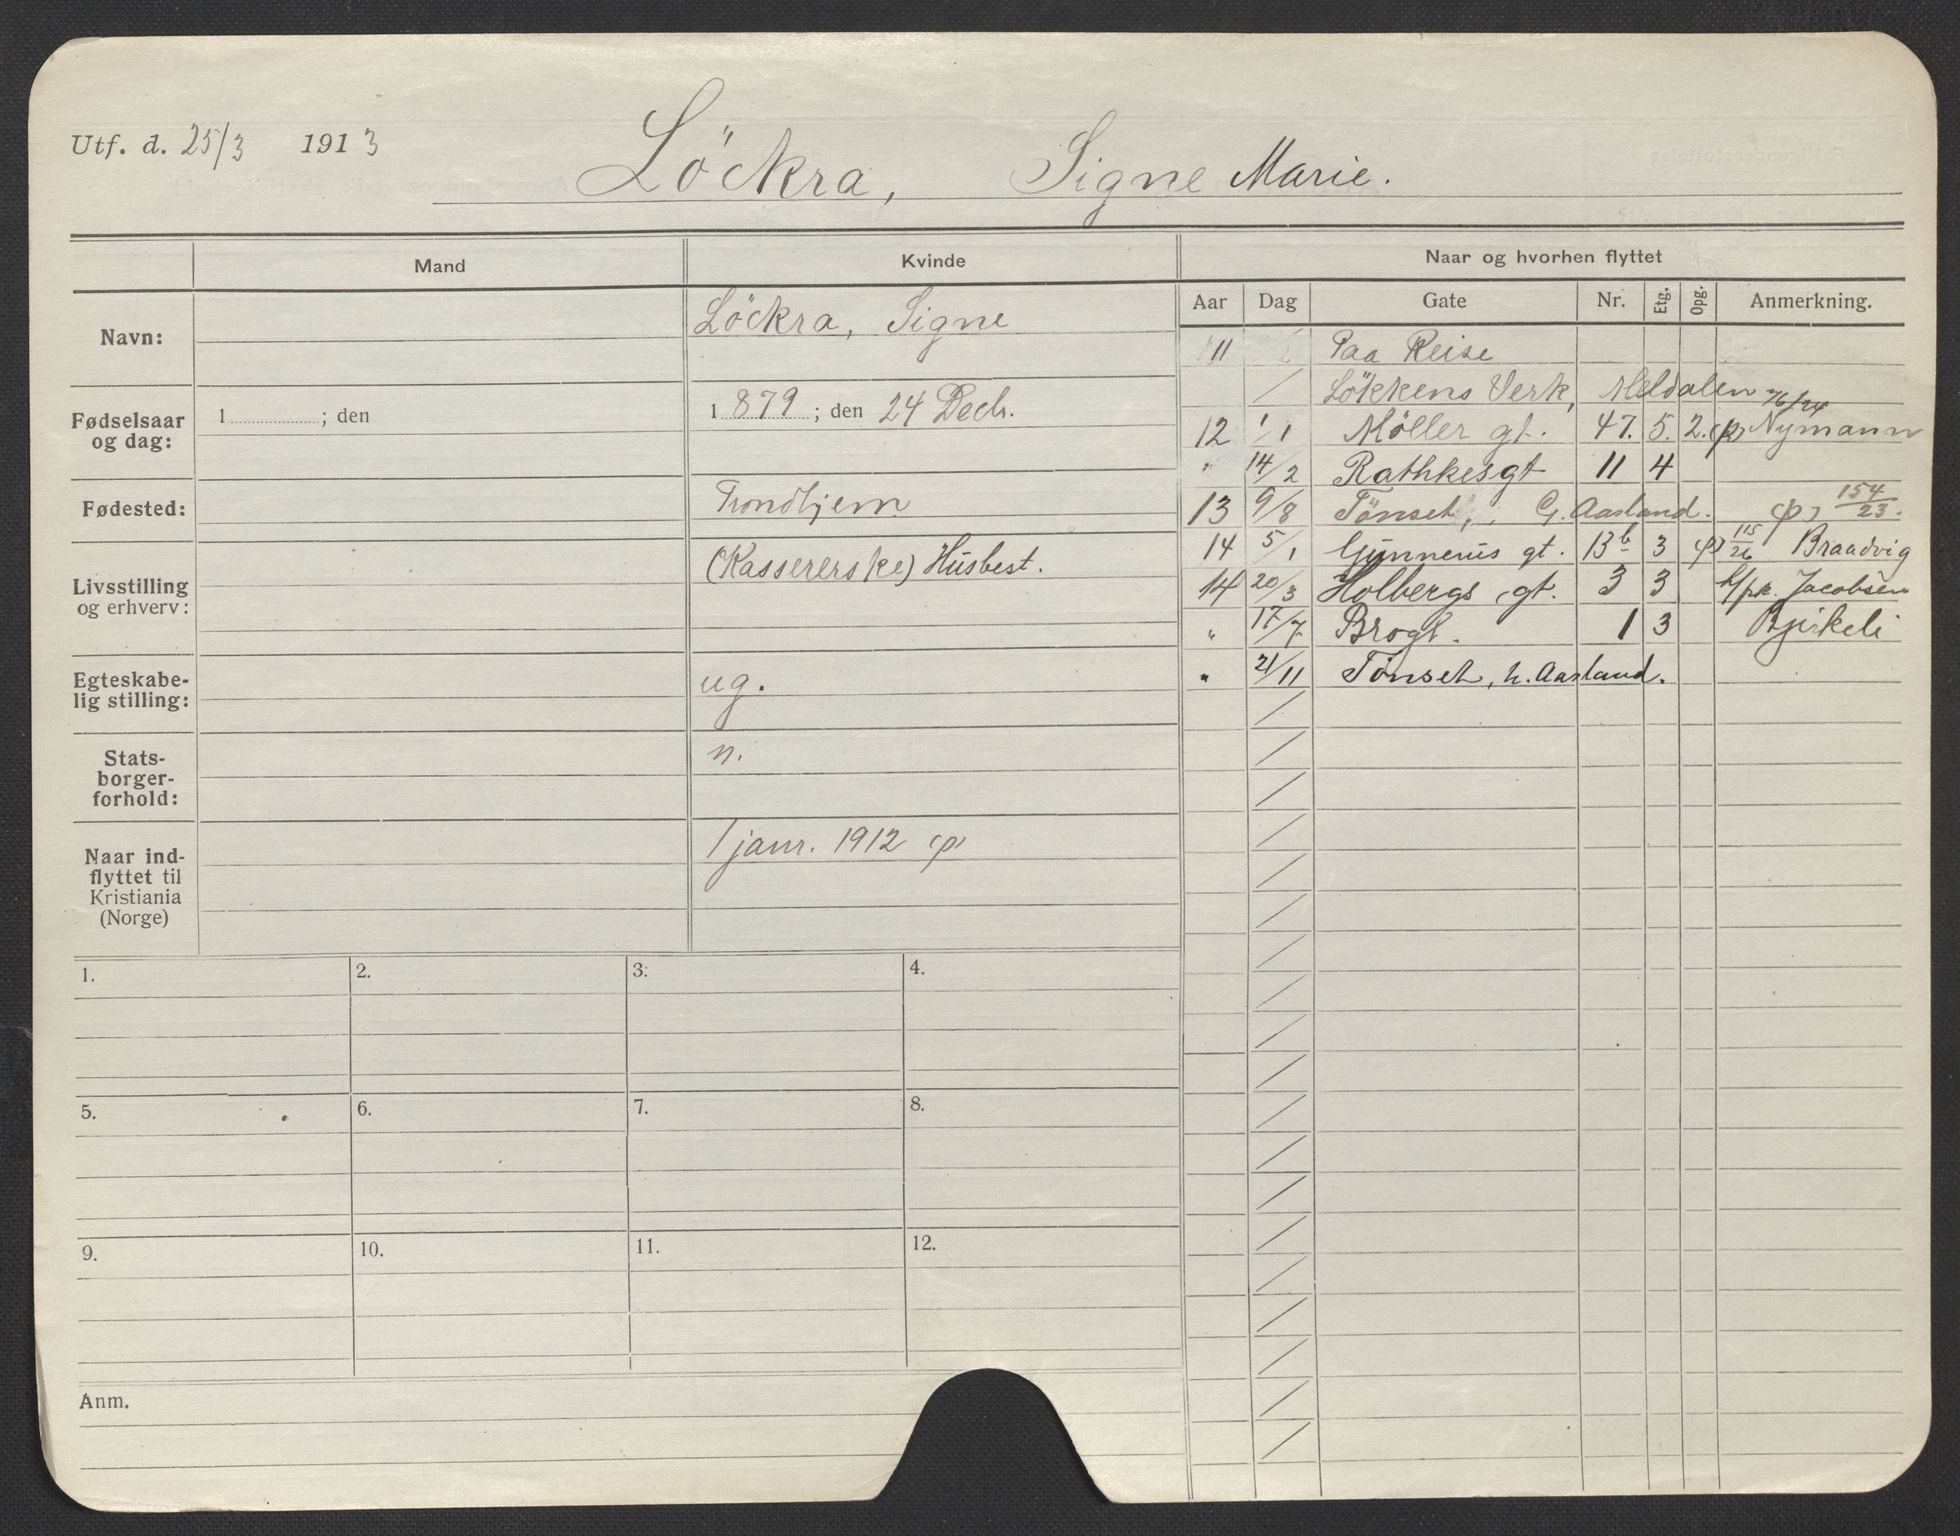 Utf. d. 25/3 1913
Löckra, Signe Marie.
Mand Kvinde Naar og hvorhen flyttet
Aar Dag Gate Nr. Etg. Opg. Anmerkning.
Navn: Löckra, Signe
Fødselsaar og dag: 1 ; den 1879 ; den 24 Decb.
Fødested: Trondhjem
Livsstilling og erhverv: (Kassererske) Husbest.
Egteskabelig stilling: ug.
Statsborgerforhold: n.
Naar indflyttet til Kristiania (Norge) 1 janr. 1912 (p)
11 Paa Reise
/ Lökkens Verk, Meldalen
76/24
12 1/1 Möller gt. 47. 5. 2. (p) Nymann
" 14/2 Rathkesgt 11 4
13 9/8 Tönset, G. Aasland. (p) 154/23.
14 5/1 Gunnerus gt. 13b 3 (p) 115/26 Braadvig
14 20/3 Holbergs gt. 3 3 Jacobsen
" 17/7 Brogt. 1 3 Bjirkeli
" 21/11 Tönset, h. Aasland.
1. 2. 3. 4.
5. 6. 7. 8.
9. 10. 11. 12.
Anm.